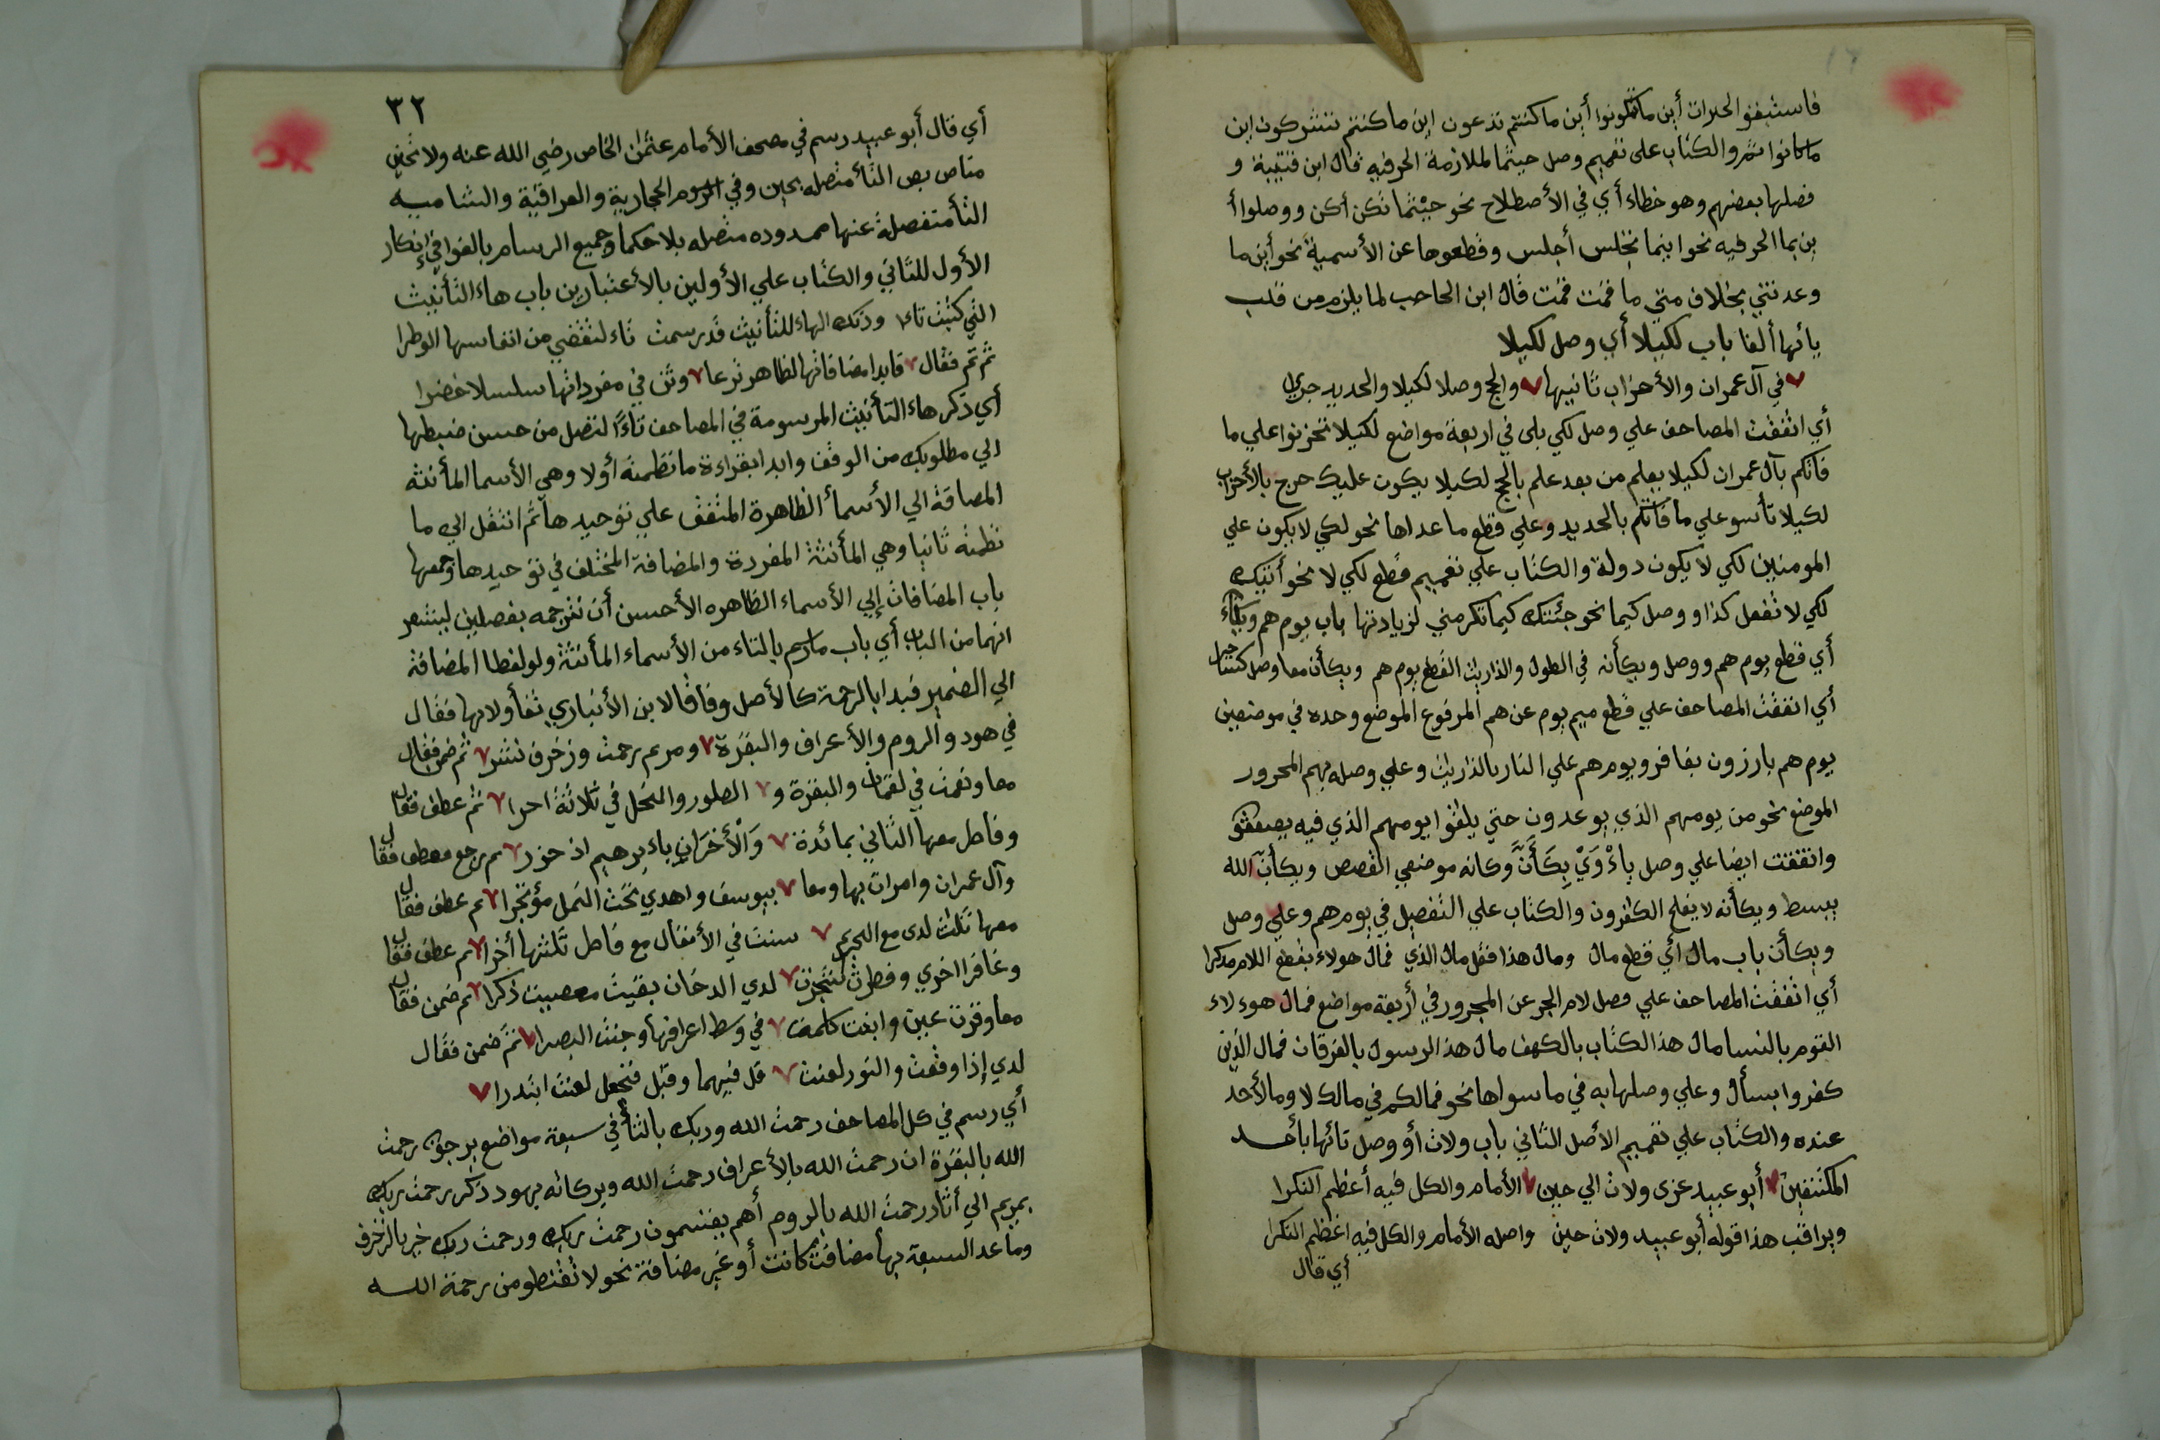 فاستبقو الخيرات أين ما تكونوا أين ما كنتم تدعون اين ما كنتم تشركون اين
ما كانوا ثم والكتاب على تعميم وصل حيثما لملازمة الحرفيه قال ابن قتيبة و
فصلها بعضهم وهو خطاء أي في الأصطلاح نحو حيثما تكن أكن ووصلوا أ
ين بما الحرفيه نحوا ينما تجلس أجلس وقطعوها عن الأسمية نحو أين ما
وعدتني بخلاف متي ما قمت قمت قال ابن الحاجب لما يلزم من قلب
يائها ألفا باب لكيلا أي وصل لكيلا
في آل عمران والأحزاب ثانيها والحج وصلا لكيلا والحديد جرى
أي اتفقت المصاحف علي وصل لكي بلى في اربعة مواضع لكيلا تحزنوا علي ما
فاتكم بآل عمران لكيلا يعلم من بعد علم بالحج لكيلا يكون عليك حرج بالأحزاب
لكيلا تأسو علي ما فاتكم بالحديد وعلي قطع ما عداها نحو لكي لا يكون علي
المومنين لكي لا يكون دولة والكتاب علي تعميم قطع لكي لا نحو أتيتك
لكي لا تفعل كذا ووصل كيما نحو جئتك كيما تكرمني لزيادتها باب يوم هم ويكأن
أي قطع يوم هم ووصل ويكأنه في الطول والذاريات القطع يوم هم ويكأن معا وصل كتب
أي اتفقت المصاحف علي قطع ميم يوم عن هم المرفوع الموضع وحده في موضعين
يوم هم بارزون بغافر ويوم هم علي النار بالذاريات وعلي وصله بهم المجرور
الموضع نحو من يومهم الذي يوعدون حتي يلقوا يومهم الذي فيه يصعقو
واتفقت ايضا علي وصل ياء وي بكأن وكانه موضعي القصص ويكأن الله
يبسط ويكأنه لا يفلح الكفرون والكتاب علي التفصيل في يوم هم وعلي وصل
ويكأن باب مال أي قطع مال ومال هذا فقل مال الذي فمال هولاء بقطع اللام مدكرا
أي اتفقت المصاحف علي فصل لام الجر عن المجرور في أربعة مواضع فمال هوء لاء
القوم بالنسا مال هذا الكتاب بالكهف مال هذ الرسول بالفرقان فمال الذين
كفروا بسأل وعلي وصلها به في ما سواها نحو فمالكم في مالك لا وما لأحد
عنده والكتاب علي تعميم الأصل الثاني باب ولات أو وصل تائها بأحد
المكتنفين أبو عبيد عزى ولات الي حين الأمام والكل فيه أعظم النكرا
ويراقب هذا قوله أبو عبيد ولات حين واصله الأمام والكل فيه اعظم النكرا
أي قال
٣٢
أي قال أبو عبيد رسم في مصحف الأمام عثمان الخاص رضي الله عنه ولا تحين
مناص بص التأ متصله بحين وفي الرسوم الحجازية والعراقية والشاميه
التأ متفصلة عنها ممدوده متصله بلا حكما وجميع الرسام بالغوا في إنكار
الأول للثاني والكتاب علي الأولين بالأعتبارين باب هاء التأنيث
التي كتبت تاء وذلك الهاء للتأنيث قد رسمت تاء لتقضي من انفاسها الوطرا
ثم تم فقال فابدا مضافاتها لظاهر ترعا وثن في مفرداتها سلسلا خضرا
أي ذكر هاء التأنيث المرسومة في المصاحف تاءً لتصل من حسن ضبطها
الي مطلوبك من الوقف وابدا بقراءة ما نظمته أولا وهي الأسما المأنثه
المصافة الي الأسمأ الظاهرة المتفف علي توحيدها ثم انتقل الي ما
نظمته ثانيا وهي المأنثة المفردة والمضافة المختلف في توحيدها وجمعها
باب المضافات إلي الأسماء الظاهره الأحسن أن نترجمه بفصلين ليشعر
انهما من الباب أي باب ما رسم بالتاء من الأسماء المأنثة ولو لفظا المضافة
الي الضمير فبدا بالرحمة كالأصل وفاقا لابن الأنباري تفأولا بها فقال
في هود والروم والأعراف والبقرة ومريم رحمت وزخرف نشر ثم ضمن فقال
معا ونعمت في لقمان والبقرة و الطور والنحل في ثلاثة احرا ثم عطف فقال
وفاطر معها الثاني بمائدة وَالْأخَرَانِ باءبرهيم اذ حزر ثم رجع فعطف فقال
وآل عمران وامرات بها ومعا بيوسف واهدي تحت النمل مؤتجرا ثم عطف فقال
معها ثلاث لدى مع التحريم سنت في الأنفال مع فاطر ثلثتها أخرا ثم عطف فقال
وغافرا اخري وفطرت شجرت لدي الدخان بقيت معصيت ذكرا ثم ضمن فقال
معا وقرت عين وابنت كلمت في وسط اعرافها وجنت البصرا ثم ضمن فقال
لدي إذا وقعت والنور لعنت قل فيهما وقبل فنجعل لعنت ابتدرا
أي رسم في كل المصاحف رحمت الله وربك بالتأ في سبعة مواضع يرجون رحمت
الله بالبقرة ان رحمت الله بالأعراف رحمت الله وبركاته بهود ذكر رحمت ربك
بمريم الي أثار رحمت الله بالروم أهم يقسمون رحمت ربك ورحمت ربك خير بالزخرف
وما عد السبعة بها مضافت كانت أو غير مضافة نحو لا تقنطو من رحمة الله